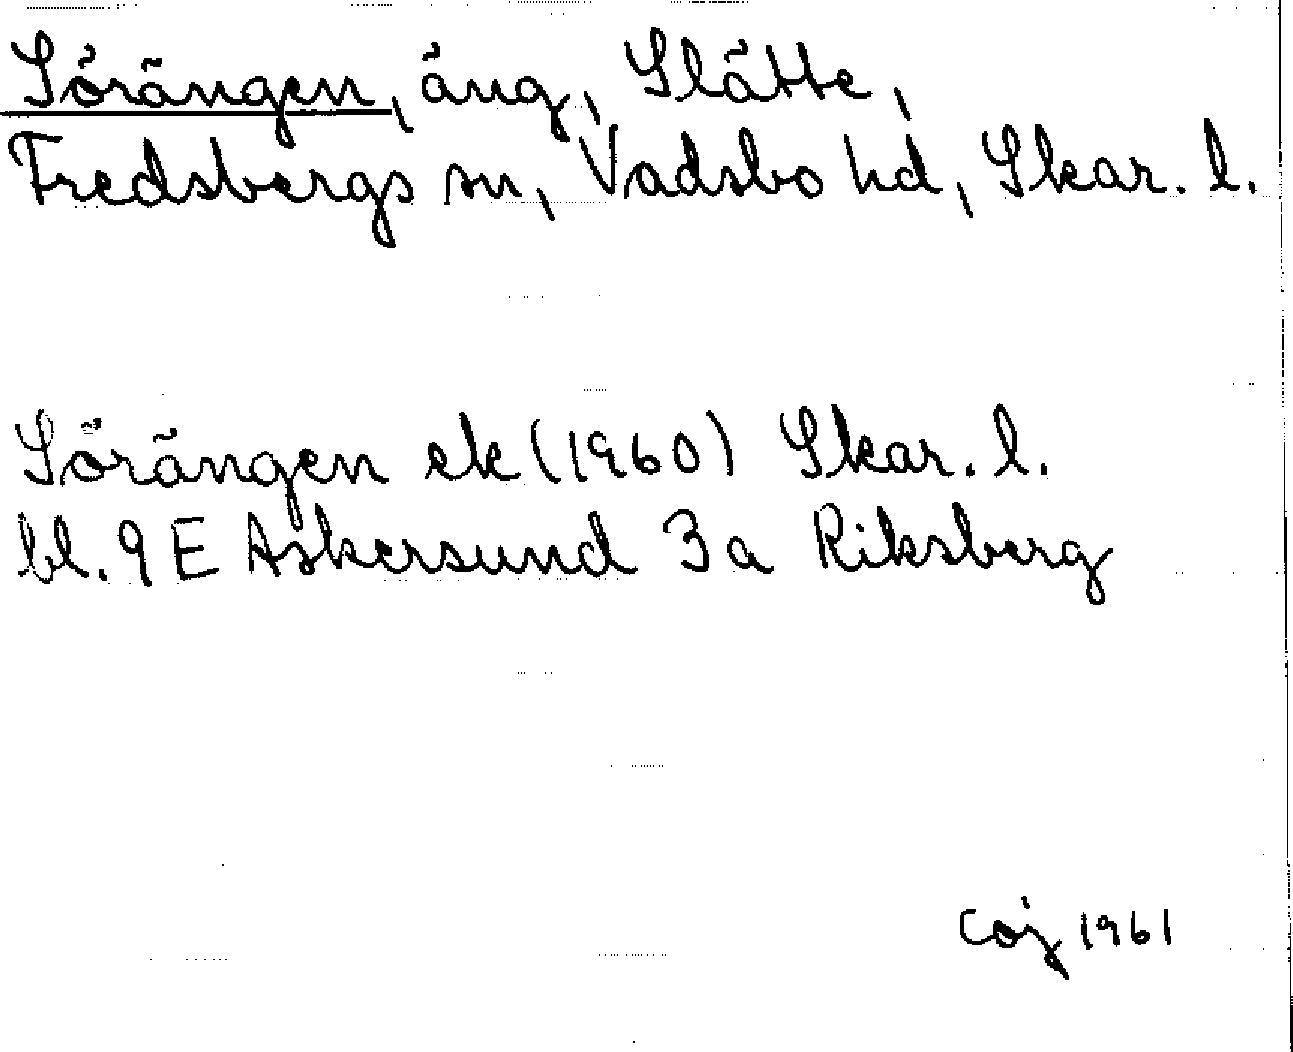 Sörängen, äng, Slätte,
Fredsbergs sn, Vadsbo hd, Skar. l.
Sörängen ek (1960) Skar. l.
bl. 9 E Askersund 3 a Riksberg
Coj 1961